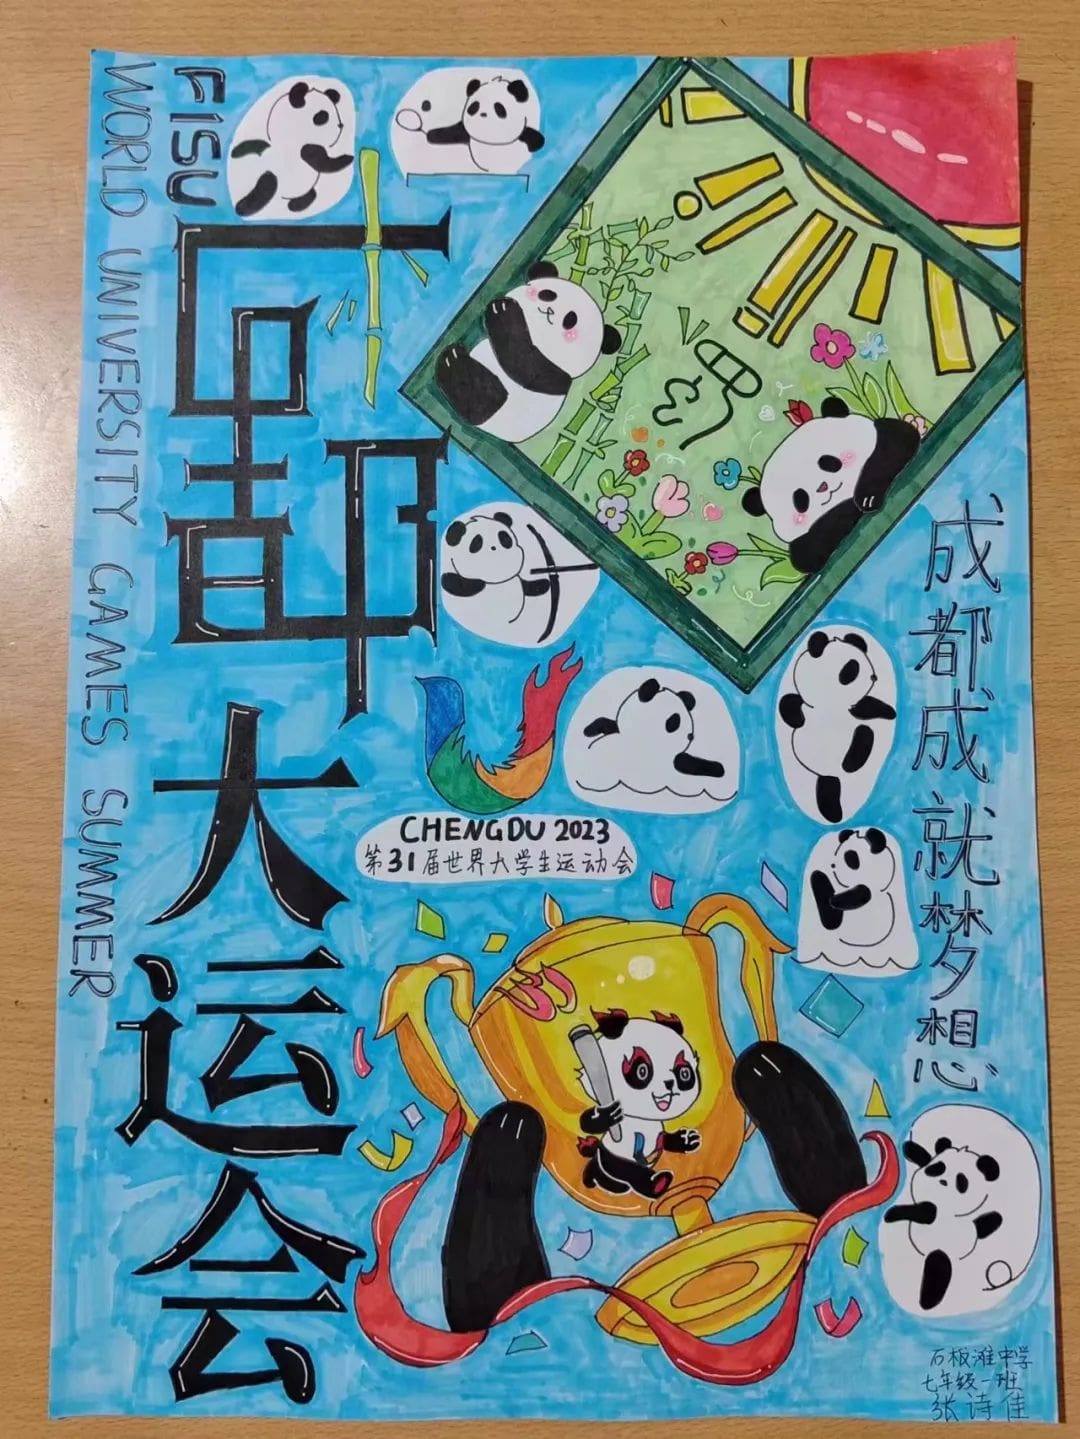 FISU
WORLD UNIVERSITY GAMES SUMMER
成都大运会
CHENGDU 2023
第31届世界大学生运动会
成都成就梦想
石板滩中学
七年级一班
张诗佳